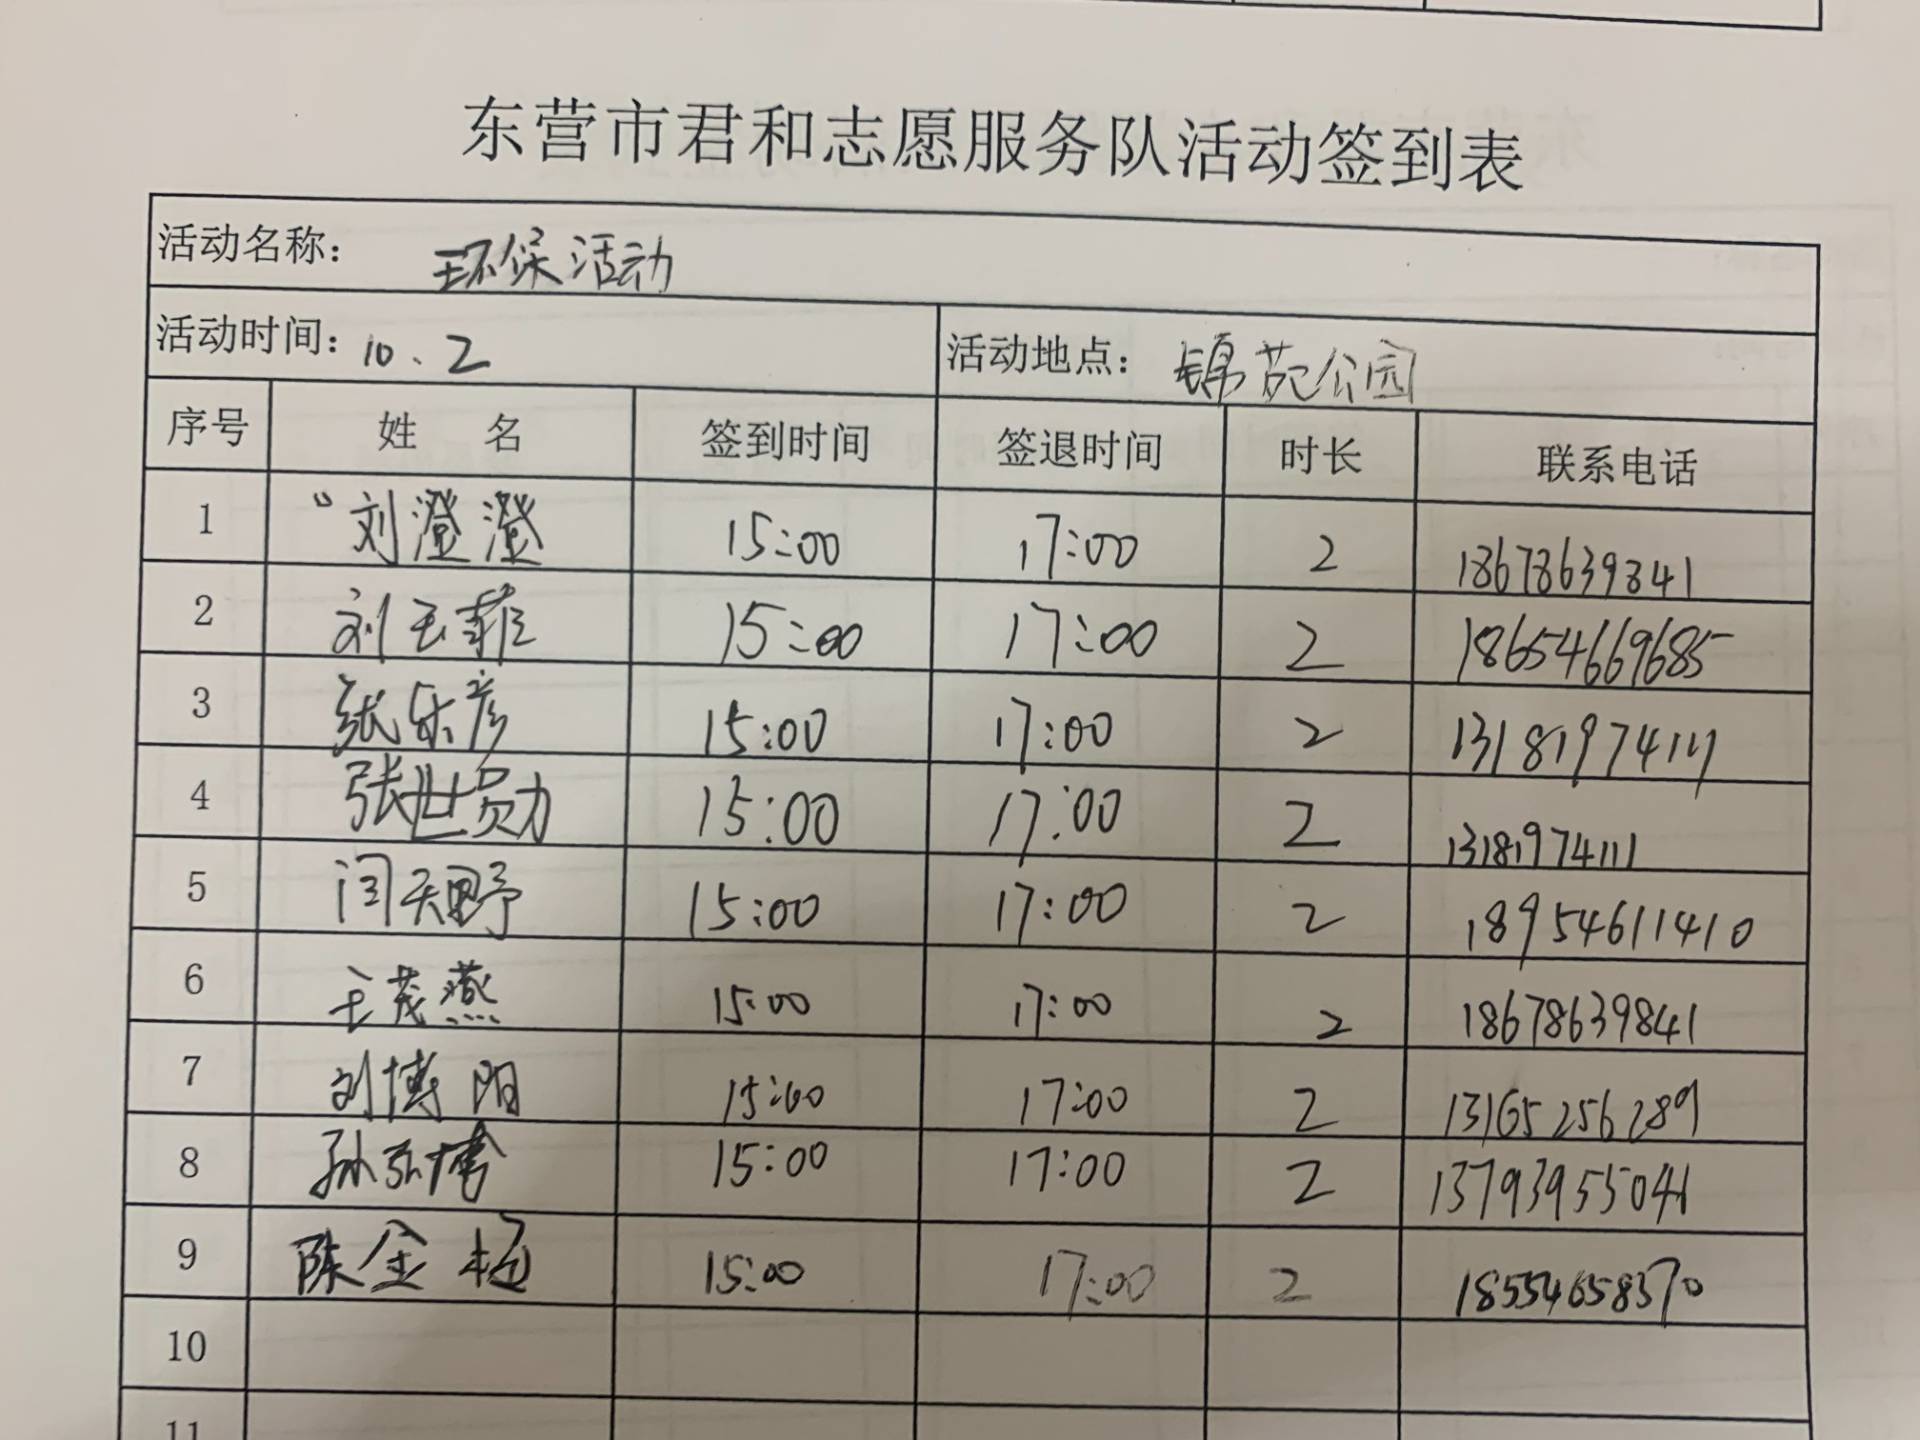 东营市君和志愿服务队活动签到表
活动名称： 环保活动
活动时间：10.2 活动地点：锦苑公园
序号 姓 名 签到时间 签退时间 时长 联系电话
1 刘澄澄 15:00 17:00 2 18678639841
2 刘玉菲 15:00 17:00 2 18654669685
3 张乐彦 15:00 17:00 2 13181974111
4 张世勋 15:00 17:00 2 13181974111
5 闫天野 15:00 17:00 2 18954611410
6 王茂燕 15:00 17:00 2 18678639841
7 刘博阳 15:00 17:00 2 13165256289
8 孙弘博 15:00 17:00 2 13793955041
9 陈全 15:00 17:00 2 18554658370
10
11